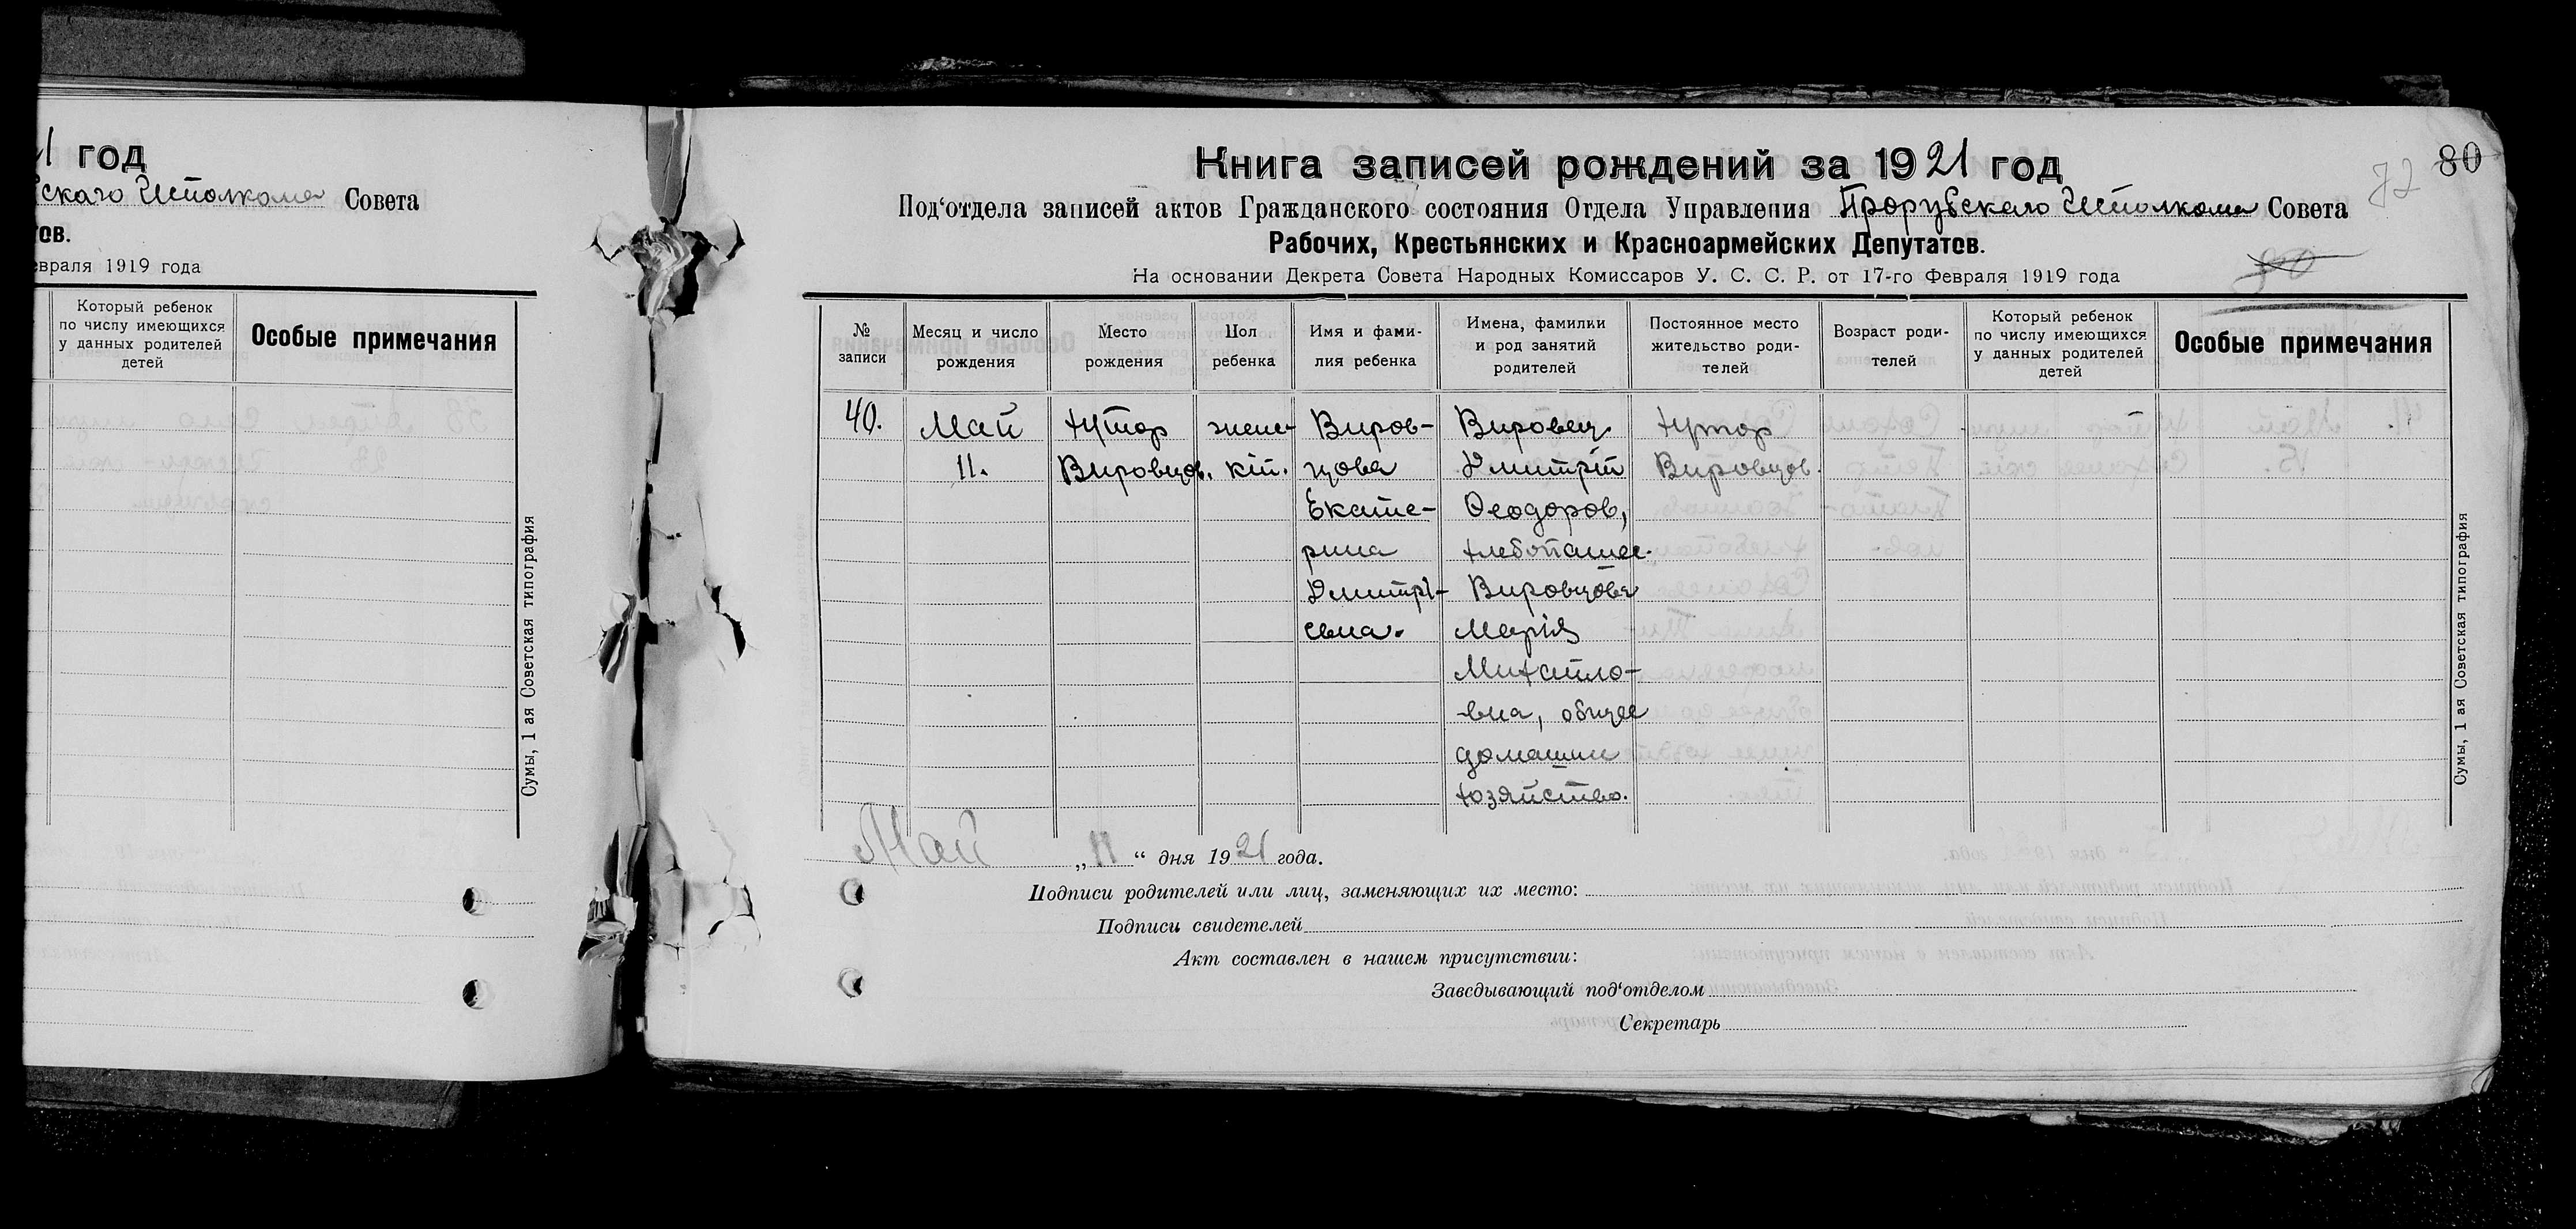 1 год
скаго Исполкома Совета
ов.
евраля 1919 года
Который ребенок
по числу имеющихся
у данных родителей
детей
Особые примечания
Сумы, 1 ая Советская типография
80
72
Книга записей рождений за 1921 год
Под‘отдела записей актов Гражданского состояния Отдела Управления Прорубскаго Исполкома Совета
Рабочих, Крестьянских и Красноармейских Депутатов.
На основании Декрета Совета Народных Комиссаров У. С. С. Р. от 17-го Февраля 1919 года
№
записи
Месяц и число
рождения
Место
рождения
Пол
ребенка
Имя и фами-
лия ребенка
Имена, фамилки
и род занятий
родителей
Постоянное место
жительство роди-
телей
Возраст роди-
телей
Который ребенок
по числу имеющихся
у данных родителей
детей
Особые примечания
40.
Май
11.
хутор
Вировцов.
женс-
кій.
Виров-
цова
Екате-
рина
Дмитрі-
евна.
Вировец
Дмитрій
Феодоров,
хлебопашес.
Вировцова
Марія
Михайло-
вна, общее
домашни
хозяйство.
хутор
Вировцов.
Май „11“ дня 1921 года.
Подписи родителей или лиц, заменяющих их место:
Подписи свидетелей
Акт составлен в нашем присутствии:
Заведывающий под‘отделом
Секретарь
Сумы, 1 ая Советская типография